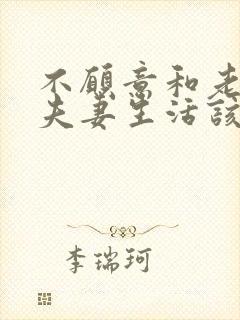 不愿意和老
夫妻生活该
李瑞珂